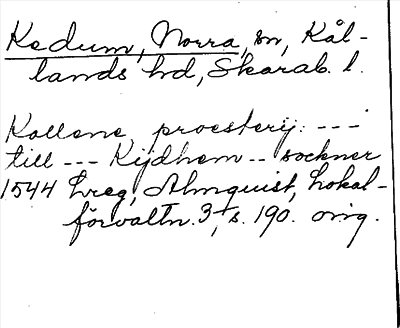 Kedum, Norra, sn, Kål-
lands hd, Skarab. l.
Kollene proesterij: ---
till --- Kijdhem -- sockner
1544 Lreg, Almquist, Lokal-
förvaltn. 3, s. 190. orig.